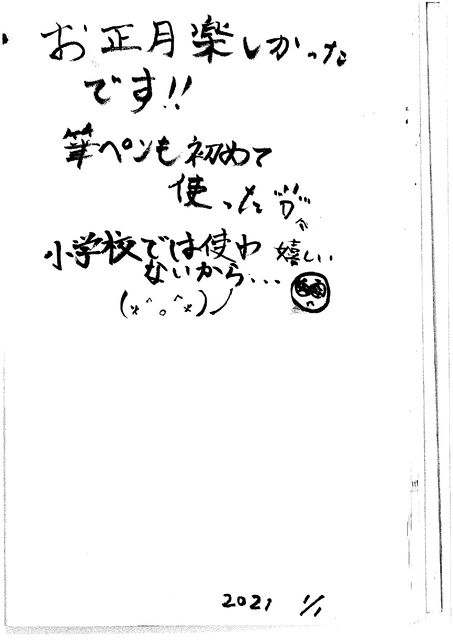 お正月楽しかった
です!!
筆ペンも初めて
使った
小学校では使わ
ないから...
嬉しい
2021 1/1